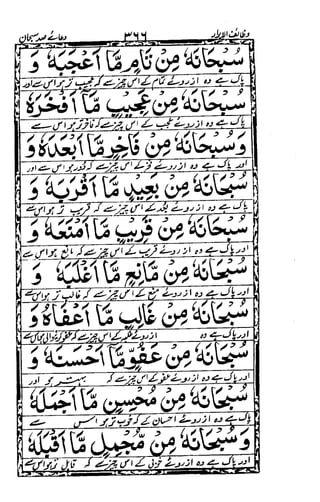 وظائف الابرار ۳۶۶ دعائے صد سبحان
سُبْحَانَهٗ مِنْ تَامٍ مَّا اَعْجَبَهٗ وَ
پاک ہے وہ ازروئے تمام کے اس چیز سے کہ عجیب تر ہو اس سے اور
سُبْحَانَهٗ مِنْ عَجِيْبٍ مَّا اَفْخَرَهٗ
پاک ہے وہ ازروئے عجب کے اس چیز سے کہ فاخر تر ہو اس سے
وَ سُبْحَانَهٗ مِنْ فَاخِرٍ مَّا اَبْعَدَهٗ وَ
اور پاک ہے وہ ازروئے فخر کے اس چیز سے کہ دور ہو اس سے و
سُبْحَانَهٗ مِنْ بَعِيْدٍ مَّا اَقْرَبَهٗ وَ
اور پاک ہے وہ ازروئے بعد کے اس چیز سے کہ قریب تر ہو اس سے
سُبْحَانَهٗ مِنْ قَرِيْبٍ مَّا اَمْنَعَهٗ وَ
اور پاک ہے وہ ازروئے قریب کے اس چیز سے کہ مانع ہو اس سے
سُبْحَانَهٗ مِنْ مَانِعٍ مَّا اَغْلَبَهٗ وَ
اور پاک ہے وہ ازروئے منع کے اس چیز سے کہ غالب تر ہو اس سے
سُبْحَانَهٗ مِنْ غَالِبٍ مَّا اَعْفَاهُ وَ
اور پاک ہے وہ ازروئے غلبہ کے اس چیز سے کہ
سُبْحَانَهٗ مِنْ عَفُوٍّ مَّا اَحْسَنَهٗ وَ
اور پاک ہے وہ ازروئے عفو کے اس چیز سے کہ بہتر ہو اور
سُبْحَانَهٗ مِنْ مُحْسِنٍ مَّا اَجْمَلَهٗ
پاک ہے وہ ازروئے احسان کے کہ خوب تر ہو اس سے
وَ سُبْحَانَهٗ مِنْ مُّجْمِلٍ مَّا اَقْبَلَهٗ
اور پاک ہے وہ ازروئے خوبی کے اس چیز سے کہ قابل تر ہو اس سے